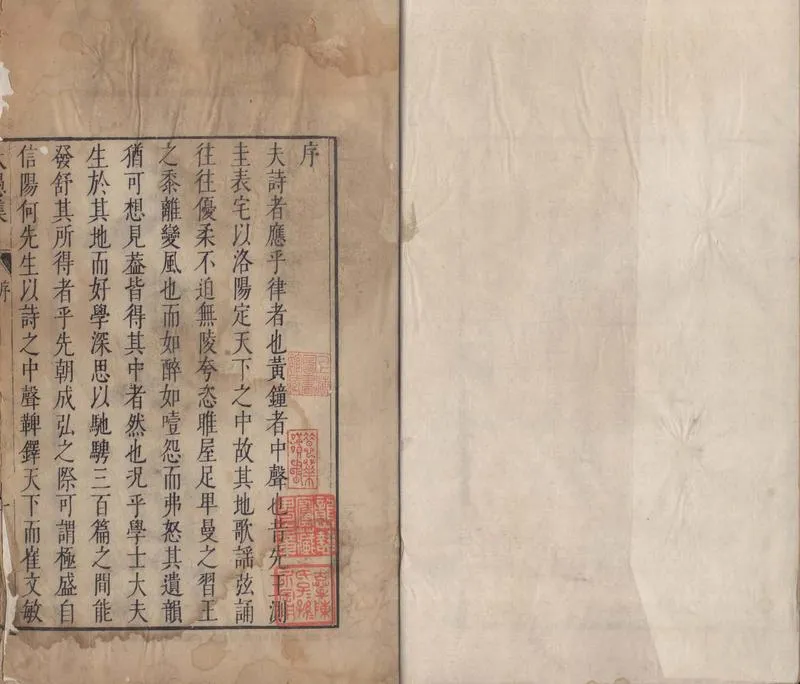 序
夫詩者應乎律者也黃鐘者中聲也昔先王測
圭表宅以洛陽定天下之中故其地歌謡弦誦
往往優柔不迫無陵夸恣睢屋足卑曼之習王
之黍離變風也而如醉如噎怨而弗怒其遺韻
猶可想見葢皆得其中者然也況乎學士大夫
生於其地而好學深思以馳騁三百篇之間能
發舒其所得者乎先朝成弘之際可謂極盛自
信陽何先生以詩之中聲鞞鐸天下而崔文敏
集
序